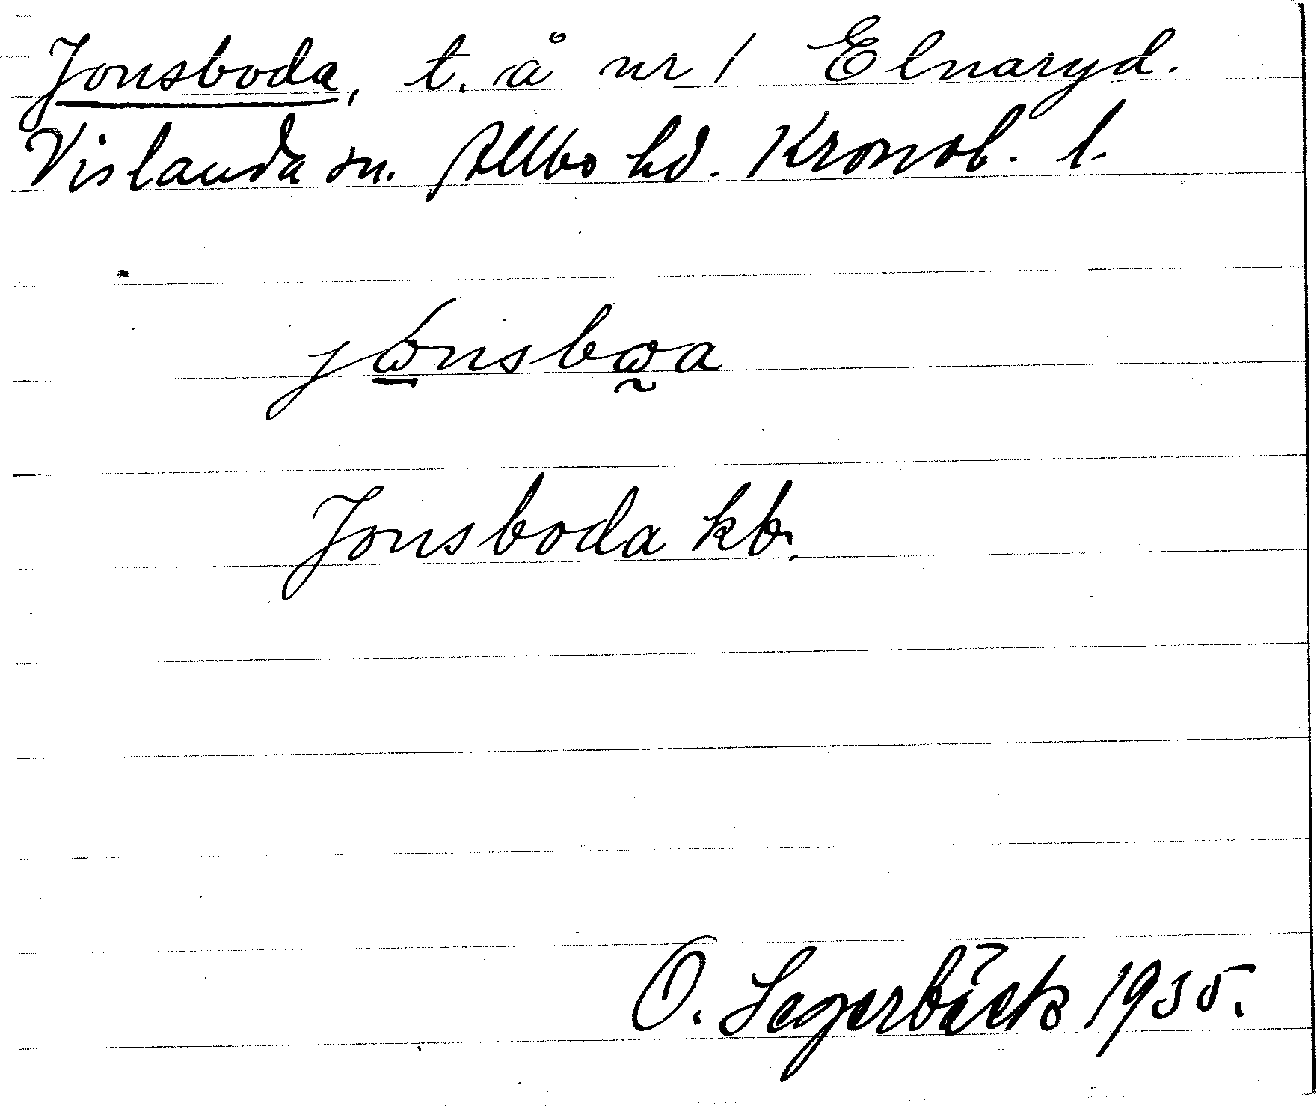 Jonsboda, t. å nr 1 Elnaryd.
Vislanda sn. Allbo hd. Kronob. l.
jωnsbωa
Jonsboda kb.
O. Segerbäck 1935.